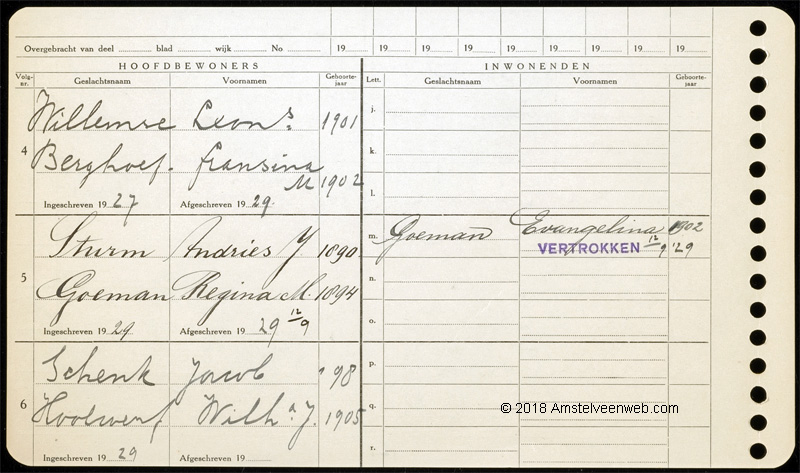 Overgebracht van deel blad wijk No 19 19 19 19 19 19 19 19 19
HOOFDBEWONERS INWONENDEN
Volg-nr. Geslachtsnaam Voornamen Geboorte-jaar Lett. Geslachtsnaam Voornamen Geboorte-jaar
Willemse Leons. 1901 j.
4
Berghoef. fransina k.
M 1902 l.
Ingeschreven 19 27 Afgeschreven 19 29.
m. Goeman Evangelina 1902
Sturm Andries J 1890 VERTROKKEN 12/9 '29
5 n.
Goeman Regina M. 1894
o.
Ingeschreven 19 29 Afgeschreven 19 29 12/9
p.
Schenk Jacob '98
6 q.
Hoolwerf Wilha. J. 1905 © 2018 Amstelveenweb.com
r.
Ingeschreven 19 29 Afgeschreven 19